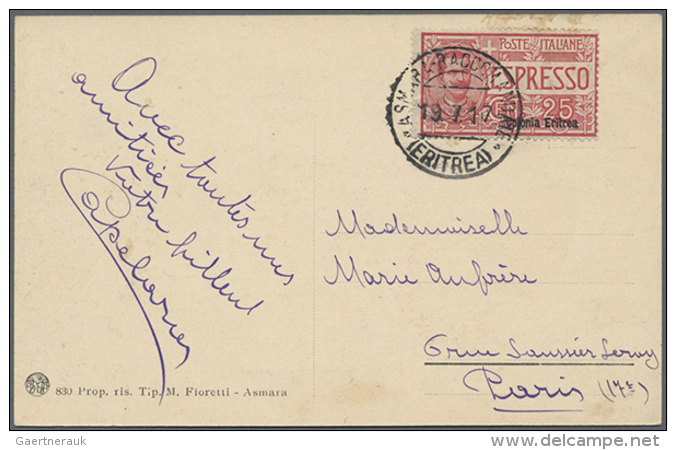 Avec toutes mes
amitiées
Capelaru
POSTE ITALIANE
ESPRESSO
25
Colonia Eritrea
ASMARA-RACCOMANDATE
19.1.17
(ERITREA)
Mademoiselle
Marie Aufrère
6 rue Saussier Leroy
Paris (17e)
830 Prop. ris. Tip. M. Fioretti - Asmara
Gaertnerauk
© delcampe.net